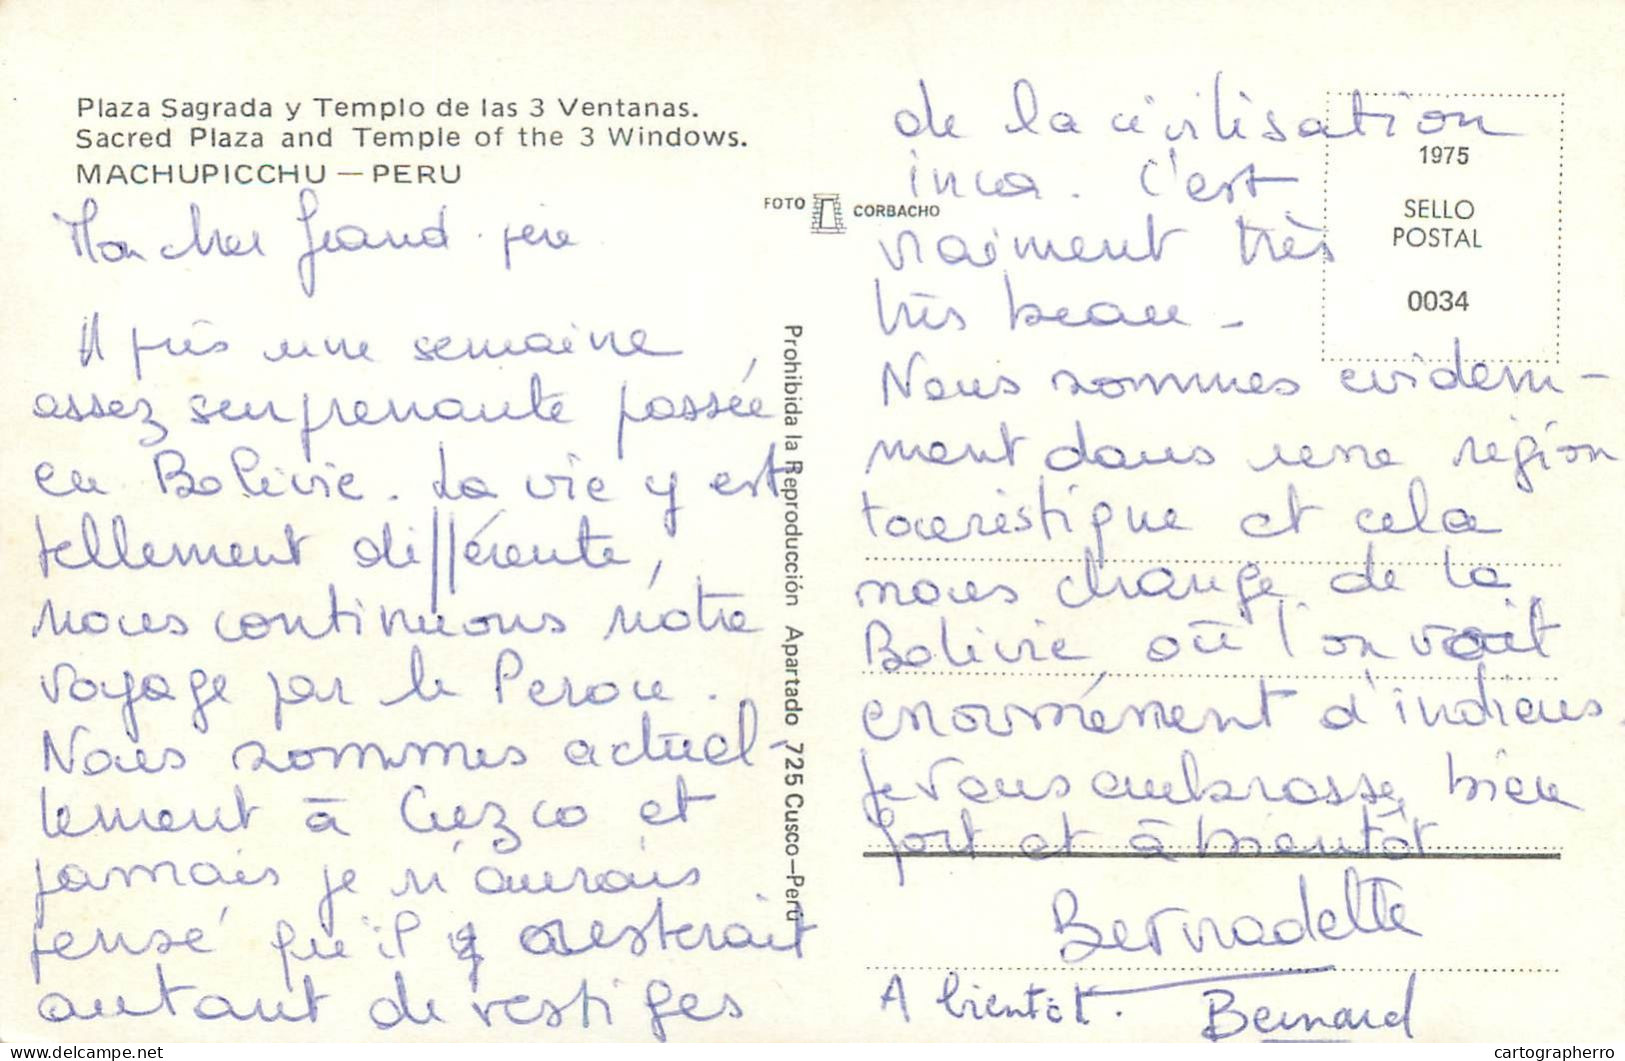 Plaza Sagrada y Templo de las 3 Ventanas.
Sacred Plaza and Temple of the 3 Windows.
MACHUPICCHU — PERU
Mon cher Grand-père
Après une semaine
assez surprenante passée
en Bolivie. La vie y est
tellement différente,
nous continuons notre
voyage par le Perou.
Nous sommes actuel-
lement à Cuzco et
jamais je n'aurais
pensé qu'il y resterait
autant de vestiges
FOTO CORBACHO
Prohibida la Reproducción Apartado 725 Cusco—Perú
de la civilisation
inca. C'est
vraiment très
très beau -
Nous sommes evidem-
ment dans une région
touristique et cela
nous change de la
Bolivie, où l'on voit
enormément d'indiens.
Je vous embrasse bien
fort et à bientôt
Bernadette
A bientôt.
Bernard
1975
SELLO
POSTAL
0034
delcampe.net
cartographerro